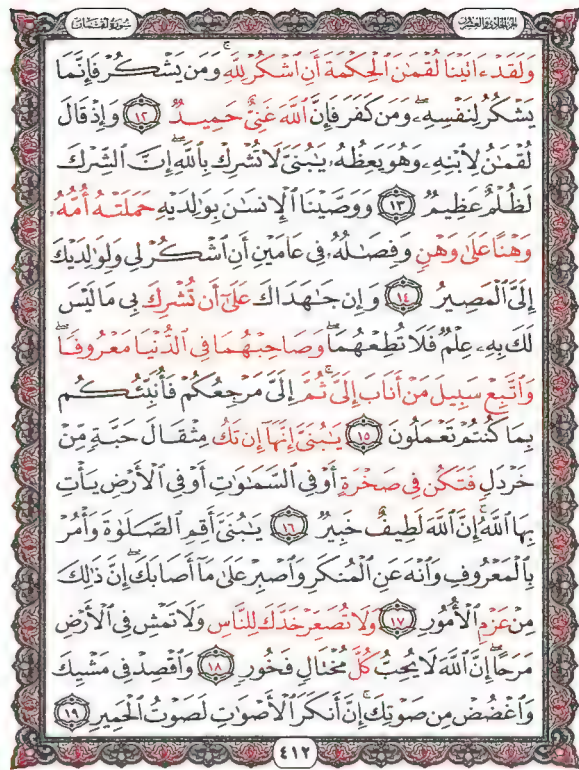 سُورَةُ لُقْمَانَ
الجزء الحادي والعشرون
وَلَقَدْ ءَاتَيْنَا لُقْمَٰنَ ٱلْحِكْمَةَ أَنِ ٱشْكُرْ لِلَّهِۚ وَمَن يَشْكُرْ فَإِنَّمَا
يَشْكُرُ لِنَفْسِهِۦۖ وَمَن كَفَرَ فَإِنَّ ٱللَّهَ غَنِىٌّ حَمِيدٌ ١٢ وَإِذْ قَالَ
لُقْمَٰنُ لِٱبْنِهِۦ وَهُوَ يَعِظُهُۥ يَٰبُنَىَّ لَا تُشْرِكْ بِٱللَّهِۖ إِنَّ ٱلشِّرْكَ
لَظُلْمٌ عَظِيمٌ ١٣ وَوَصَّيْنَا ٱلْإِنسَٰنَ بِوَٰلِدَيْهِ حَمَلَتْهُ أُمُّهُۥ
وَهْنًا عَلَىٰ وَهْنٍ وَفِصَٰلُهُۥ فِى عَامَيْنِ أَنِ ٱشْكُرْ لِى وَلِوَٰلِدَيْكَ
إِلَىَّ ٱلْمَصِيرُ ١٤ وَإِن جَٰهَدَاكَ عَلَىٰٓ أَن تُشْرِكَ بِى مَا لَيْسَ
لَكَ بِهِۦ عِلْمٌ فَلَا تُطِعْهُمَاۖ وَصَاحِبْهُمَا فِى ٱلدُّنْيَا مَعْرُوفًاۖ
وَٱتَّبِعْ سَبِيلَ مَنْ أَنَابَ إِلَىَّۚ ثُمَّ إِلَىَّ مَرْجِعُكُمْ فَأُنَبِّئُكُم
بِمَا كُنتُمْ تَعْمَلُونَ ١٥ يَٰبُنَىَّ إِنَّهَآ إِن تَكُ مِثْقَالَ حَبَّةٍ مِّنْ
خَرْدَلٍ فَتَكُن فِى صَخْرَةٍ أَوْ فِى ٱلسَّمَٰوَٰتِ أَوْ فِى ٱلْأَرْضِ يَأْتِ
بِهَا ٱللَّهُۚ إِنَّ ٱللَّهَ لَطِيفٌ خَبِيرٌ ١٦ يَٰبُنَىَّ أَقِمِ ٱلصَّلَوٰةَ وَأْمُرْ
بِٱلْمَعْرُوفِ وَٱنْهَ عَنِ ٱلْمُنكَرِ وَٱصْبِرْ عَلَىٰ مَآ أَصَابَكَۖ إِنَّ ذَٰلِكَ
مِنْ عَزْمِ ٱلْأُمُورِ ١٧ وَلَا تُصَعِّرْ خَدَّكَ لِلنَّاسِ وَلَا تَمْشِ فِى ٱلْأَرْضِ
مَرَحًاۖ إِنَّ ٱللَّهَ لَا يُحِبُّ كُلَّ مُخْتَالٍ فَخُورٍ ١٨ وَٱقْصِدْ فِى مَشْيِكَ
وَٱغْضُضْ مِن صَوْتِكَۚ إِنَّ أَنكَرَ ٱلْأَصْوَٰتِ لَصَوْتُ ٱلْحَمِيرِ ١٩
٤١٢